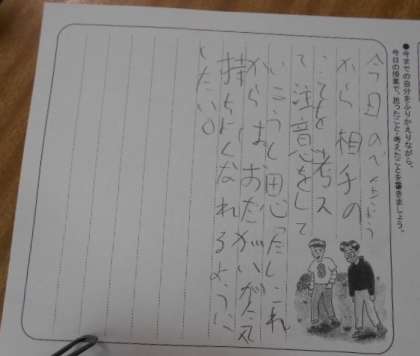 ●今までの自分をふりかえりながら、
今日の授業で、思ったこと・考えたことを書きましょう。
今日のべんきょう
から 相手の
ことを考え
て 注意をして
いこうと思ったしこれ
からは、おたがいがいい気
持ちになれるように
したい。